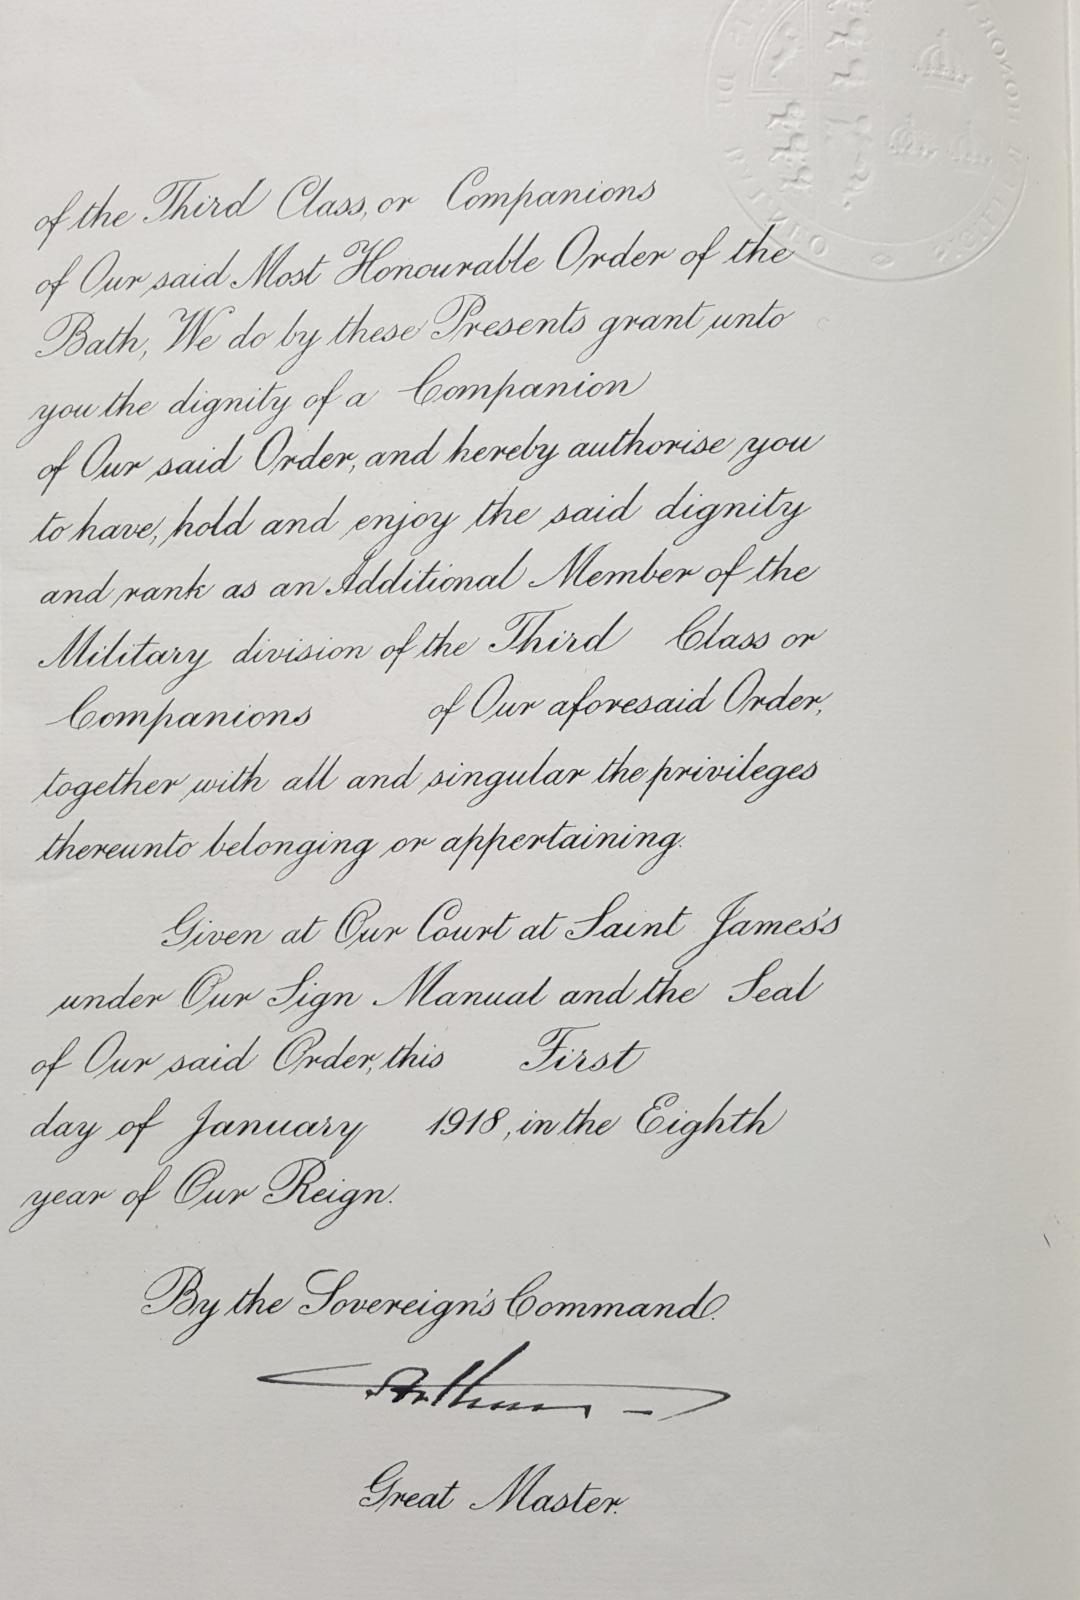 of the Third Class, or Companions
of Our said Most Honourable Order of the
Bath, We do by these Presents grant unto
you the dignity of a Companion
of Our said Order, and hereby authorise you
to have, hold and enjoy the said dignity
and rank as an Additional Member of the
Military division of the Third Class or
Companions of Our aforesaid Order,
together with all and singular the privileges
thereunto belonging or appertaining.
Given at Our Court at Saint James's
under Our Sign Manual and the Seal
of Our said Order, this First
day of January 1918, in the Eighth
year of Our Reign.
By the Sovereign's Command.
Arthur
Great Master.